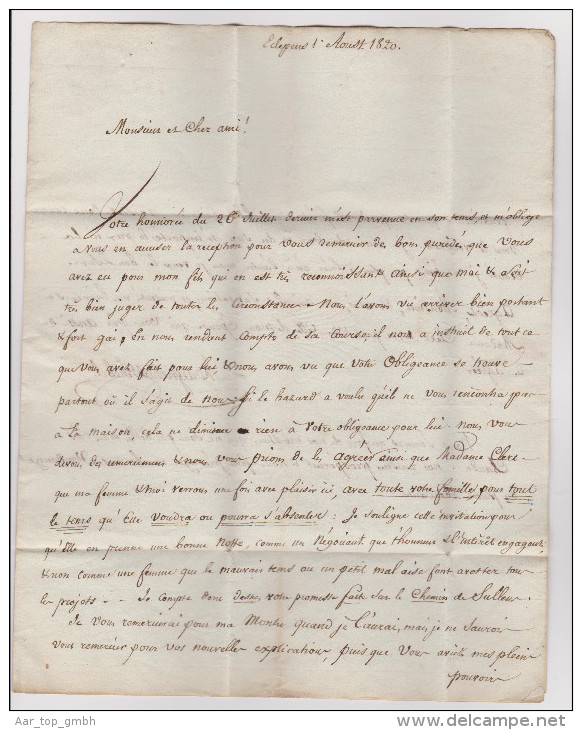 Eclepens 1r Aoust 1820.
Monsieur et Cher ami!
Votre honnorée du 26e Juillet dernier m'est parvenue en son tems, et m'oblige
à vous en accuser la reception pour vous remercier des bons procédés que vous
avez eu pour mon fils qui en est très reconnoissant ainsi que moi & a sçu
très bien juger de toutes les circonstances. Nous l'avons vu arriver bien portant
& fort gai, En nous rendant compte de sa course, il nous a instruit de tout ce
que Vous avez fait pour lui & nous avons vu que votre Obligeance se trouve
partout où il s'agit de nous. Si le hazard a voulu qu'il ne vous rencontra pas
à la maison, cela ne diminue rien à Votre obligeance pour lui. Nous vous
devons des remerciemens & nous vous prions de les agréer ainsi que Madame Clerc
que ma femme & moi verrons une fois avec plaisir ici, avec toute votre famille, pour tout
le tems qu'Elle voudra ou pourra s'absenter: Je souligne cette invitation pour
qu'Elle en prenne une bonne Notte, comme un Négociant que l'honneur & l'intérêt engagent,
& non comme une femme que le mauvais tems ou un petit mal aise font arretter tous
les projets. - - Je compte donc dessus, votre promesse fait sur le Chemin de Sullens.
Je vous remercierai pour ma Montre quand je l'aurai, mais je ne saurois
vous remercier pour vos nouvelles explications, puis que Vous aviez mes plein
pouvoirs
Aar_top_gmbh
www.delcampe.net